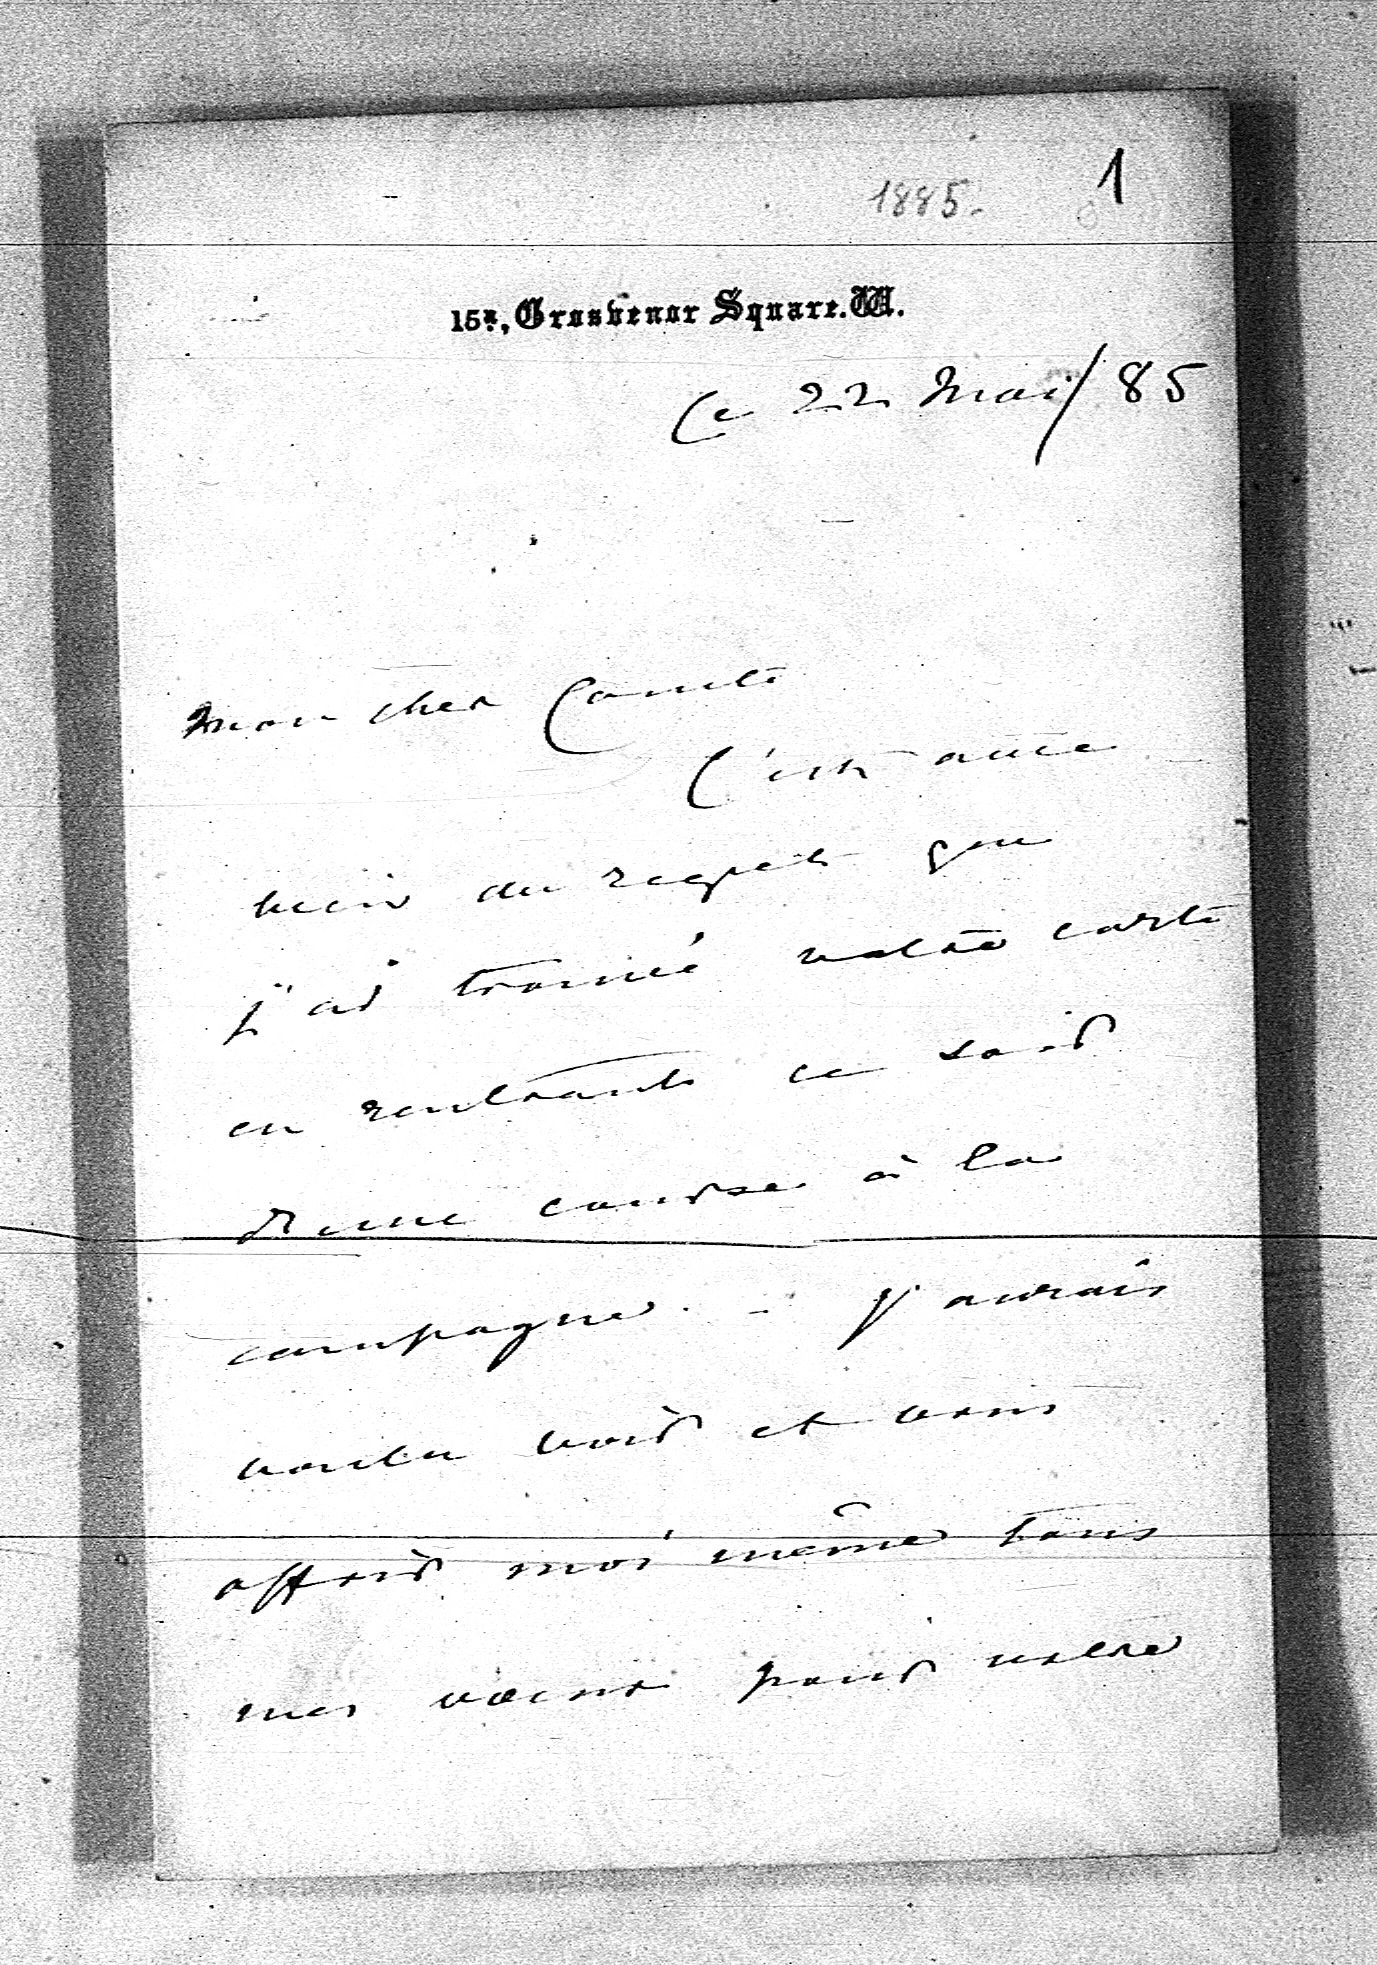 1885. 1
15ᴬ, Grosvenor Square. W.
Ce 22 Mai/85
Mon cher Comte
C'est avec
bien du regret que
j'ai trouvé votre carte
en rentrant ce soir
d'une course à la
campagne. - J'aurais
voulu voir et vous
offrir moi même tous
mes vœux pour votre